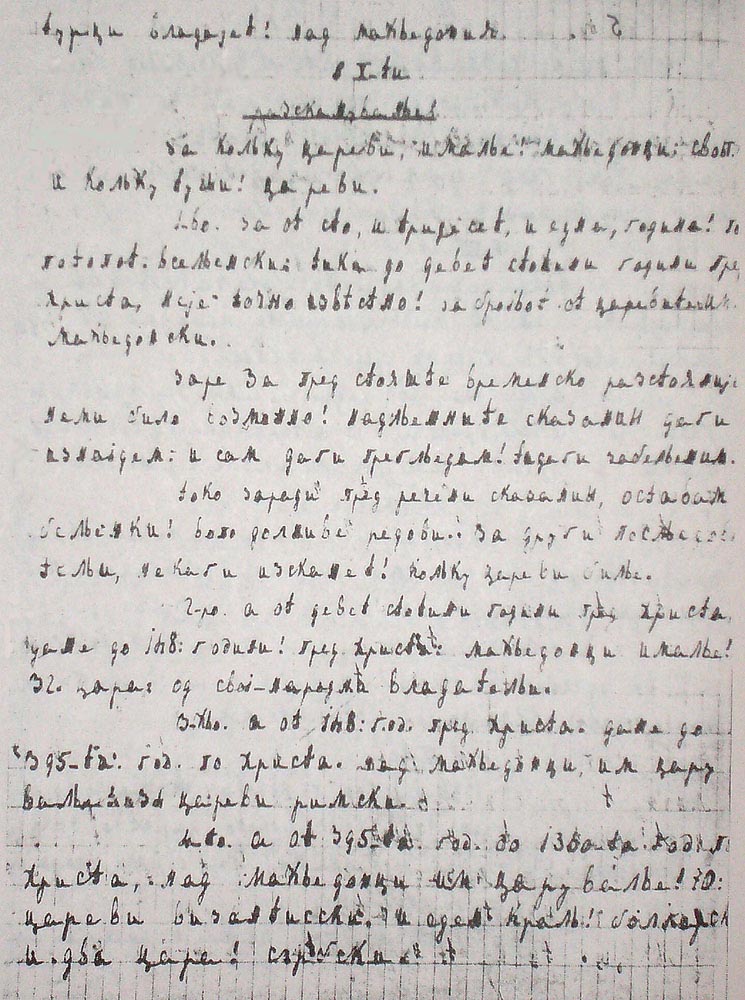 турци владајет! над маќьедониꙗ.
§ X-ти
за кольку цареви, ималье! маќьедонци: свои.
и кольку туѓи! цареви.
1-во. за от сто, и тридесет, и една, година! по
потопот. всељенски: тики до девет стотини години пред
христа, неје точно извѣстно! за бројвот от царевите
маќьедонски.
заре за пред стоꙗште временско разстоꙗније
неми било возможно! сказании дати
изнајдем: и сам дати прегльедам! тидаги забельежим.
токо заради пред речени сказании, оставам
бельешки! вопо долниве редови.. за други
тельи, некаги изскапет! кольку цареви билье.
2-ро. а от девет стотини години пред христа,
дапе до 148: години! пред христа: маќьедонци ималье!
32. цара: од свои-народни владательи.
3-ќо. а от 148: год. пред христа. дапе до
395-та: год. по христа. над маќьедонци, им цару
валье цареви римски.
4-то. а от 395-та. год. до 1350-та. год. п
христа, над маќьедонци им царувалье!
цареви византиски. и еден краль!
и два цара! сәрбски.